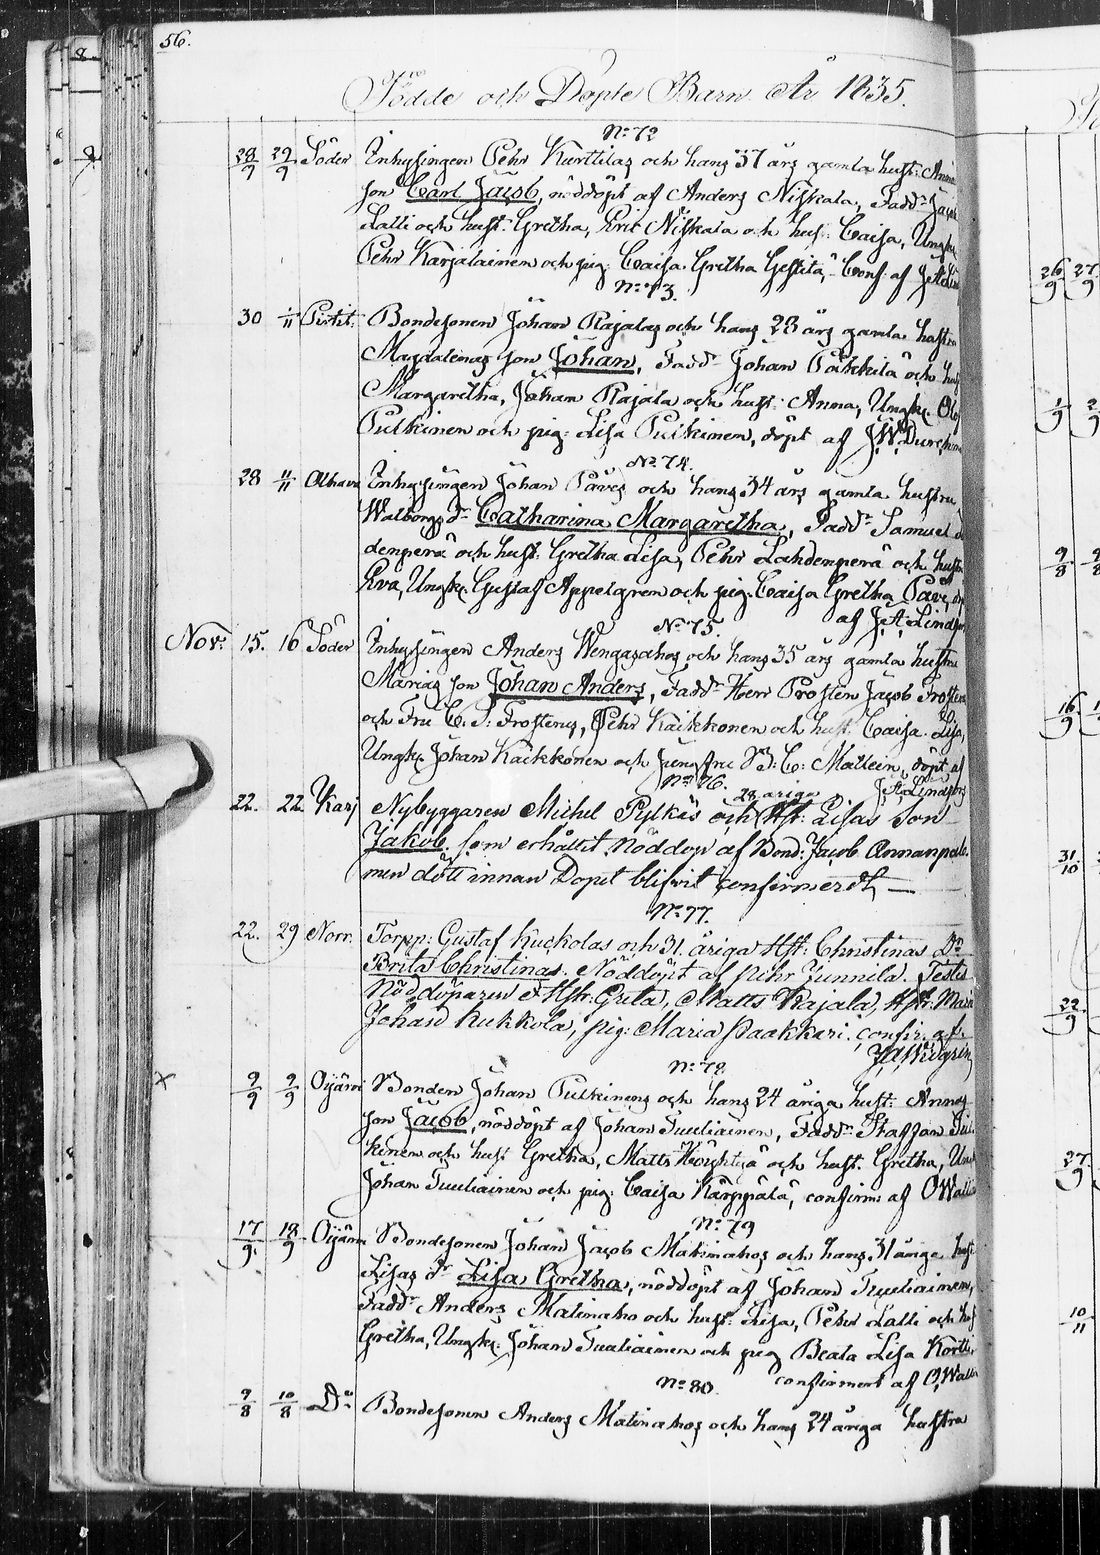 56.
Födde och Döpte Barn År 1835.
No 72
28/9 29/9 Söder Inhysingen Pehr Kurttilas och hans 37 års gamla hust: Annas
son Carl Jacob, nöddöpt af Anders Niskala, Fadd:r Jacob
Lalli och hust: Gretha, Eric Niskala och hust: Caisa, Ungk:
Pehr Karjalainen och pig: Caisa Gretha Conf: af
No 73.
30 1/11 Bondesonen Johan Rajalas och hans 28 års gamla hustru
Magdalenas son Johan, Fadd:r Johan Päkkilä och hust
Margaretha, Johan Rajala och hust: Anna, Ungk: Olof
Pulkinen och pig: Lisa Pulkinen, döpt af J. W.
No 74.
28 11/11 Alhava Inhysingen Johan Paves och hans 34 års gamla hustru
Walborgs d:r Catharina Margaretha, Fadd:r Samuel
denperä och hust: Gretha Lisa, Pehr Lahdenperä och hustru
Eva, Ungk: Gustaf Appelgren och pig: Caisa Gretha Pave,
af J. A. Lindfors
No 75.
Nov: 15. 16 Söder Inhysingen Anders Wengasahos och hans 35 års gamla hustru
Marias son Johan Anders, Fadd:r Herr Prosten Jacob Frosterus
och Fru C. S. Frosterus, Pehr Kaikkonen och hust: Caisa Lisa,
Ungk: Johan Kaikkonen och Jungfru B: C: Mallein, döpt af
J. A. Lindfors
No 76.
28 åriga
22. 22. Karj Nybyggaren Michel Pylkäs och Hst: Lisas Son
Jakob som erhållit Nöddop af Bond: Jacob Annanpalo.
men dött innan Dopet blifvit confirmeradt,
No 77.
22. 29 Norr. Torpp: Gustaf Kuckolas och 31. åriga Hst: Christinas D:r
Brita Christina. Nöddöpt af Pehr Yunnila. Testes
Nöddöparen & Hstr: Greta, Matts Rajala, Hstr: Maria
Johan Kukkola, pig: Maria Paakkari. confir. af.
No 78
x 9/9 9/9 Oijärvi Bonden Johan Pulkinens och hans 24 åriga hust: Annas
son Jacob, nöddöpt af Johan Tuuliainen, Fadd:r Staffan Pul
kinen och hust Gretha, Matts och hust. Gretha, Ungk
Johan Tuuliainen och pig: Caisa Kärppälä, confirm: af O Wall
No 79
17/9 18/9 Oijärvi Bondesonen Johan Jacob Matinahos och hans 31 åriga hust
Lisas d:r Lisa Gretha, nöddöpt af Johan Tuuliainen,
Fadd:r Anders Matinaho och hust: Lisa, Pehr Lalli och hust
Gretha, Ungk: Johan Tuuliainen och pig Beata Lisa Kortti
confirmert af O, Wall
No 80.
9/8 10/8 D:o Bondesonen Anders Matinahos och hans 24 åriga hustru
26/9 27/9
1/9
9/8
16/9
31/10
22/9
27/9
10/11